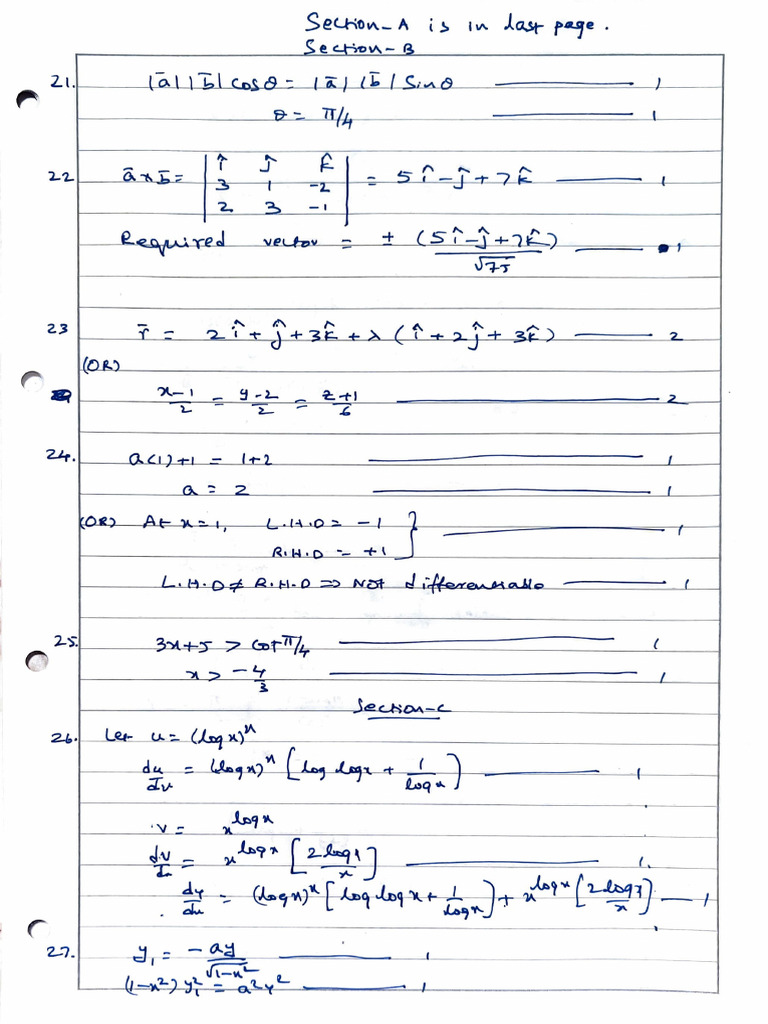 Section-A is in last page.
Section-B
21. |ā| |b̄| cosθ = |ā| |b̄| Sinθ ——— 1
θ = π/4 ——— 1
22 ā×b̄ = | î ĵ k̂ | = 5î-ĵ+7k̂ ——— 1
3 1 -2
2 3 -1
Required vector = ± (5î-ĵ+7k̂)/√75 ——— 1
23 r̄ = 2î+ĵ+3k̂+λ(î+2ĵ+3k̂) ——— 2
(OR)
(x-1)/2 = (y-2)/2 = (z+1)/6 ——— 2
24. a(1)+1 = 1+2 ——— 1
a = 2 ——— 1
(OR) At x=1, L.H.D = -1 } ——— 1
R.H.D = +1
L.H.D ≠ R.H.D ⇒ Not differentiable ——— 1
25. 3x+5 > cot π/4 ——— 1
x > -4/3 ——— 1
Section-C
26. Let u = (log x)^x
du/dx = (log x)^x [log log x + 1/log x] ——— 1
v = x^log x
dv/dx = x^log x [2 log x/x] ——— 1
dy/dx = (log x)^x [log log x + 1/log x] + x^log x [2 log x/x] — 1
27. y₁ = -ay/√1-x² ——— 1
(1-x²) y₁² = a²y² ——— 1